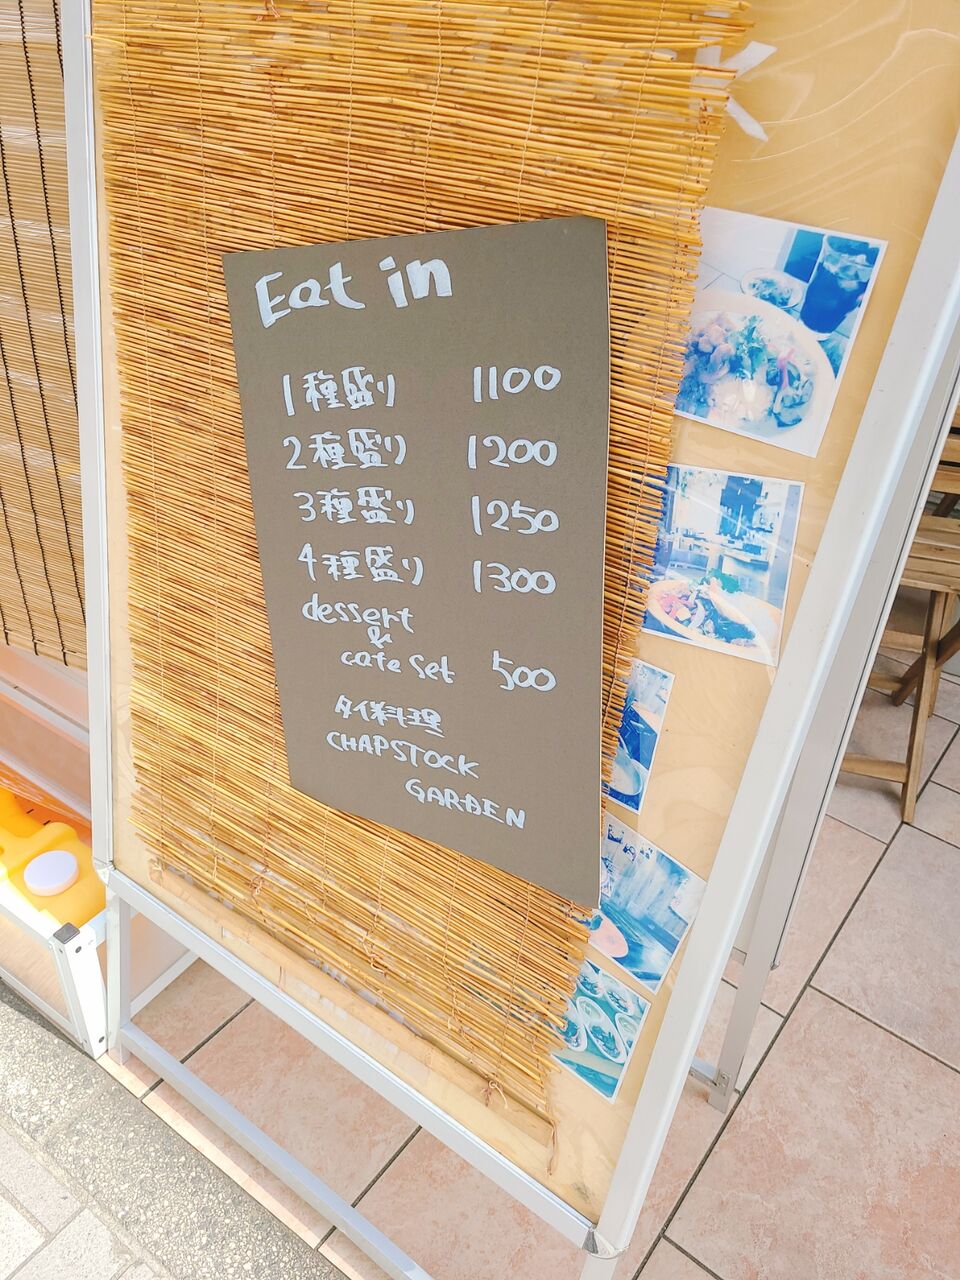 Eat in
1種盛り 1100
2種盛り 1200
3種盛り 1250
4種盛り 1300
dessert
&
cafe set 500
タイ料理
CHAPSTOCK
GARDEN